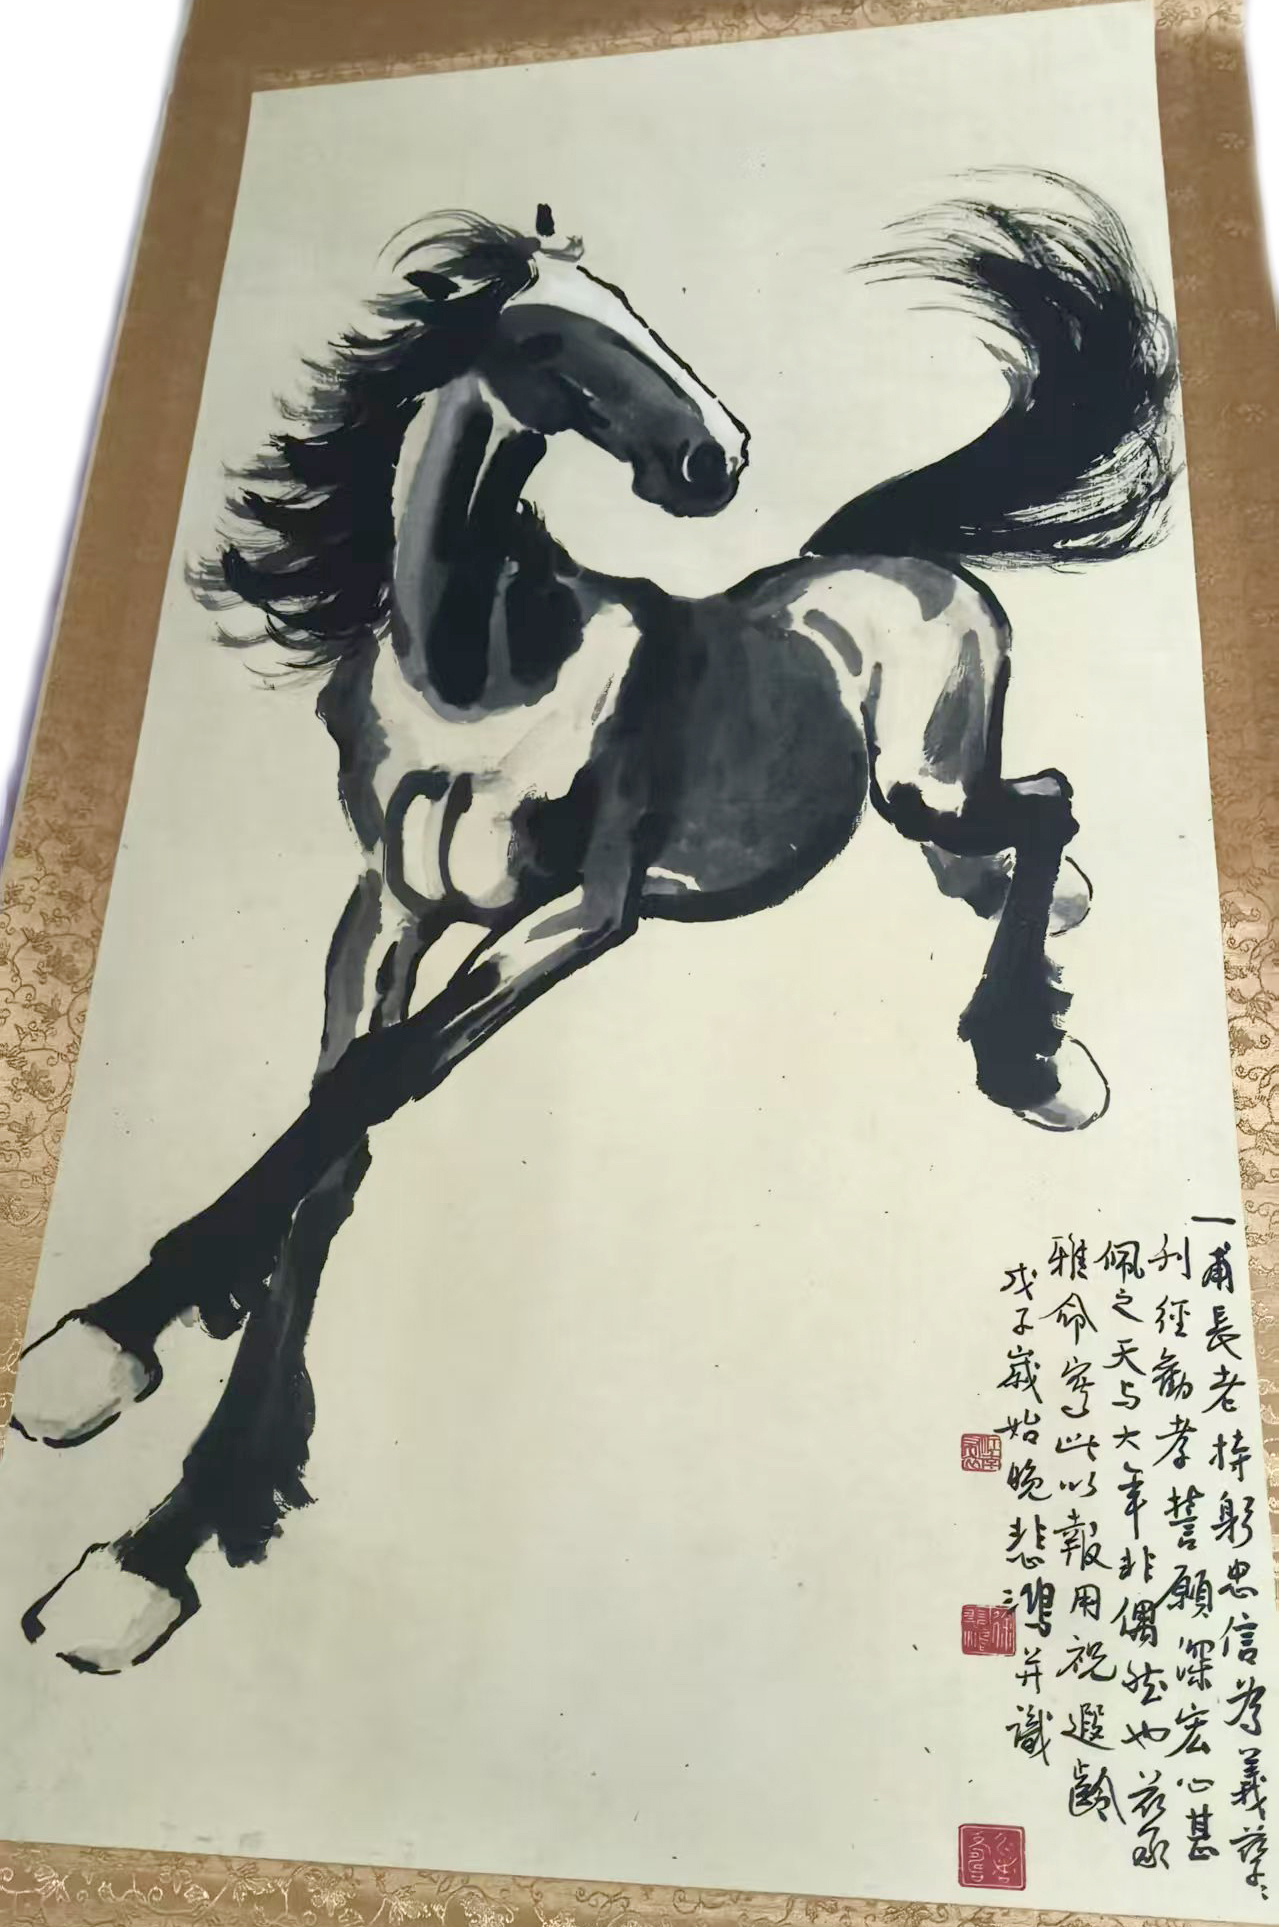 一甫長老持躬忠信為義孳〻
刊經勸孝誓願深宏心甚
佩之天与大年非偶然也茲承
雅命寫此以報用祝遐齡
戊子歲始晚悲鴻并識